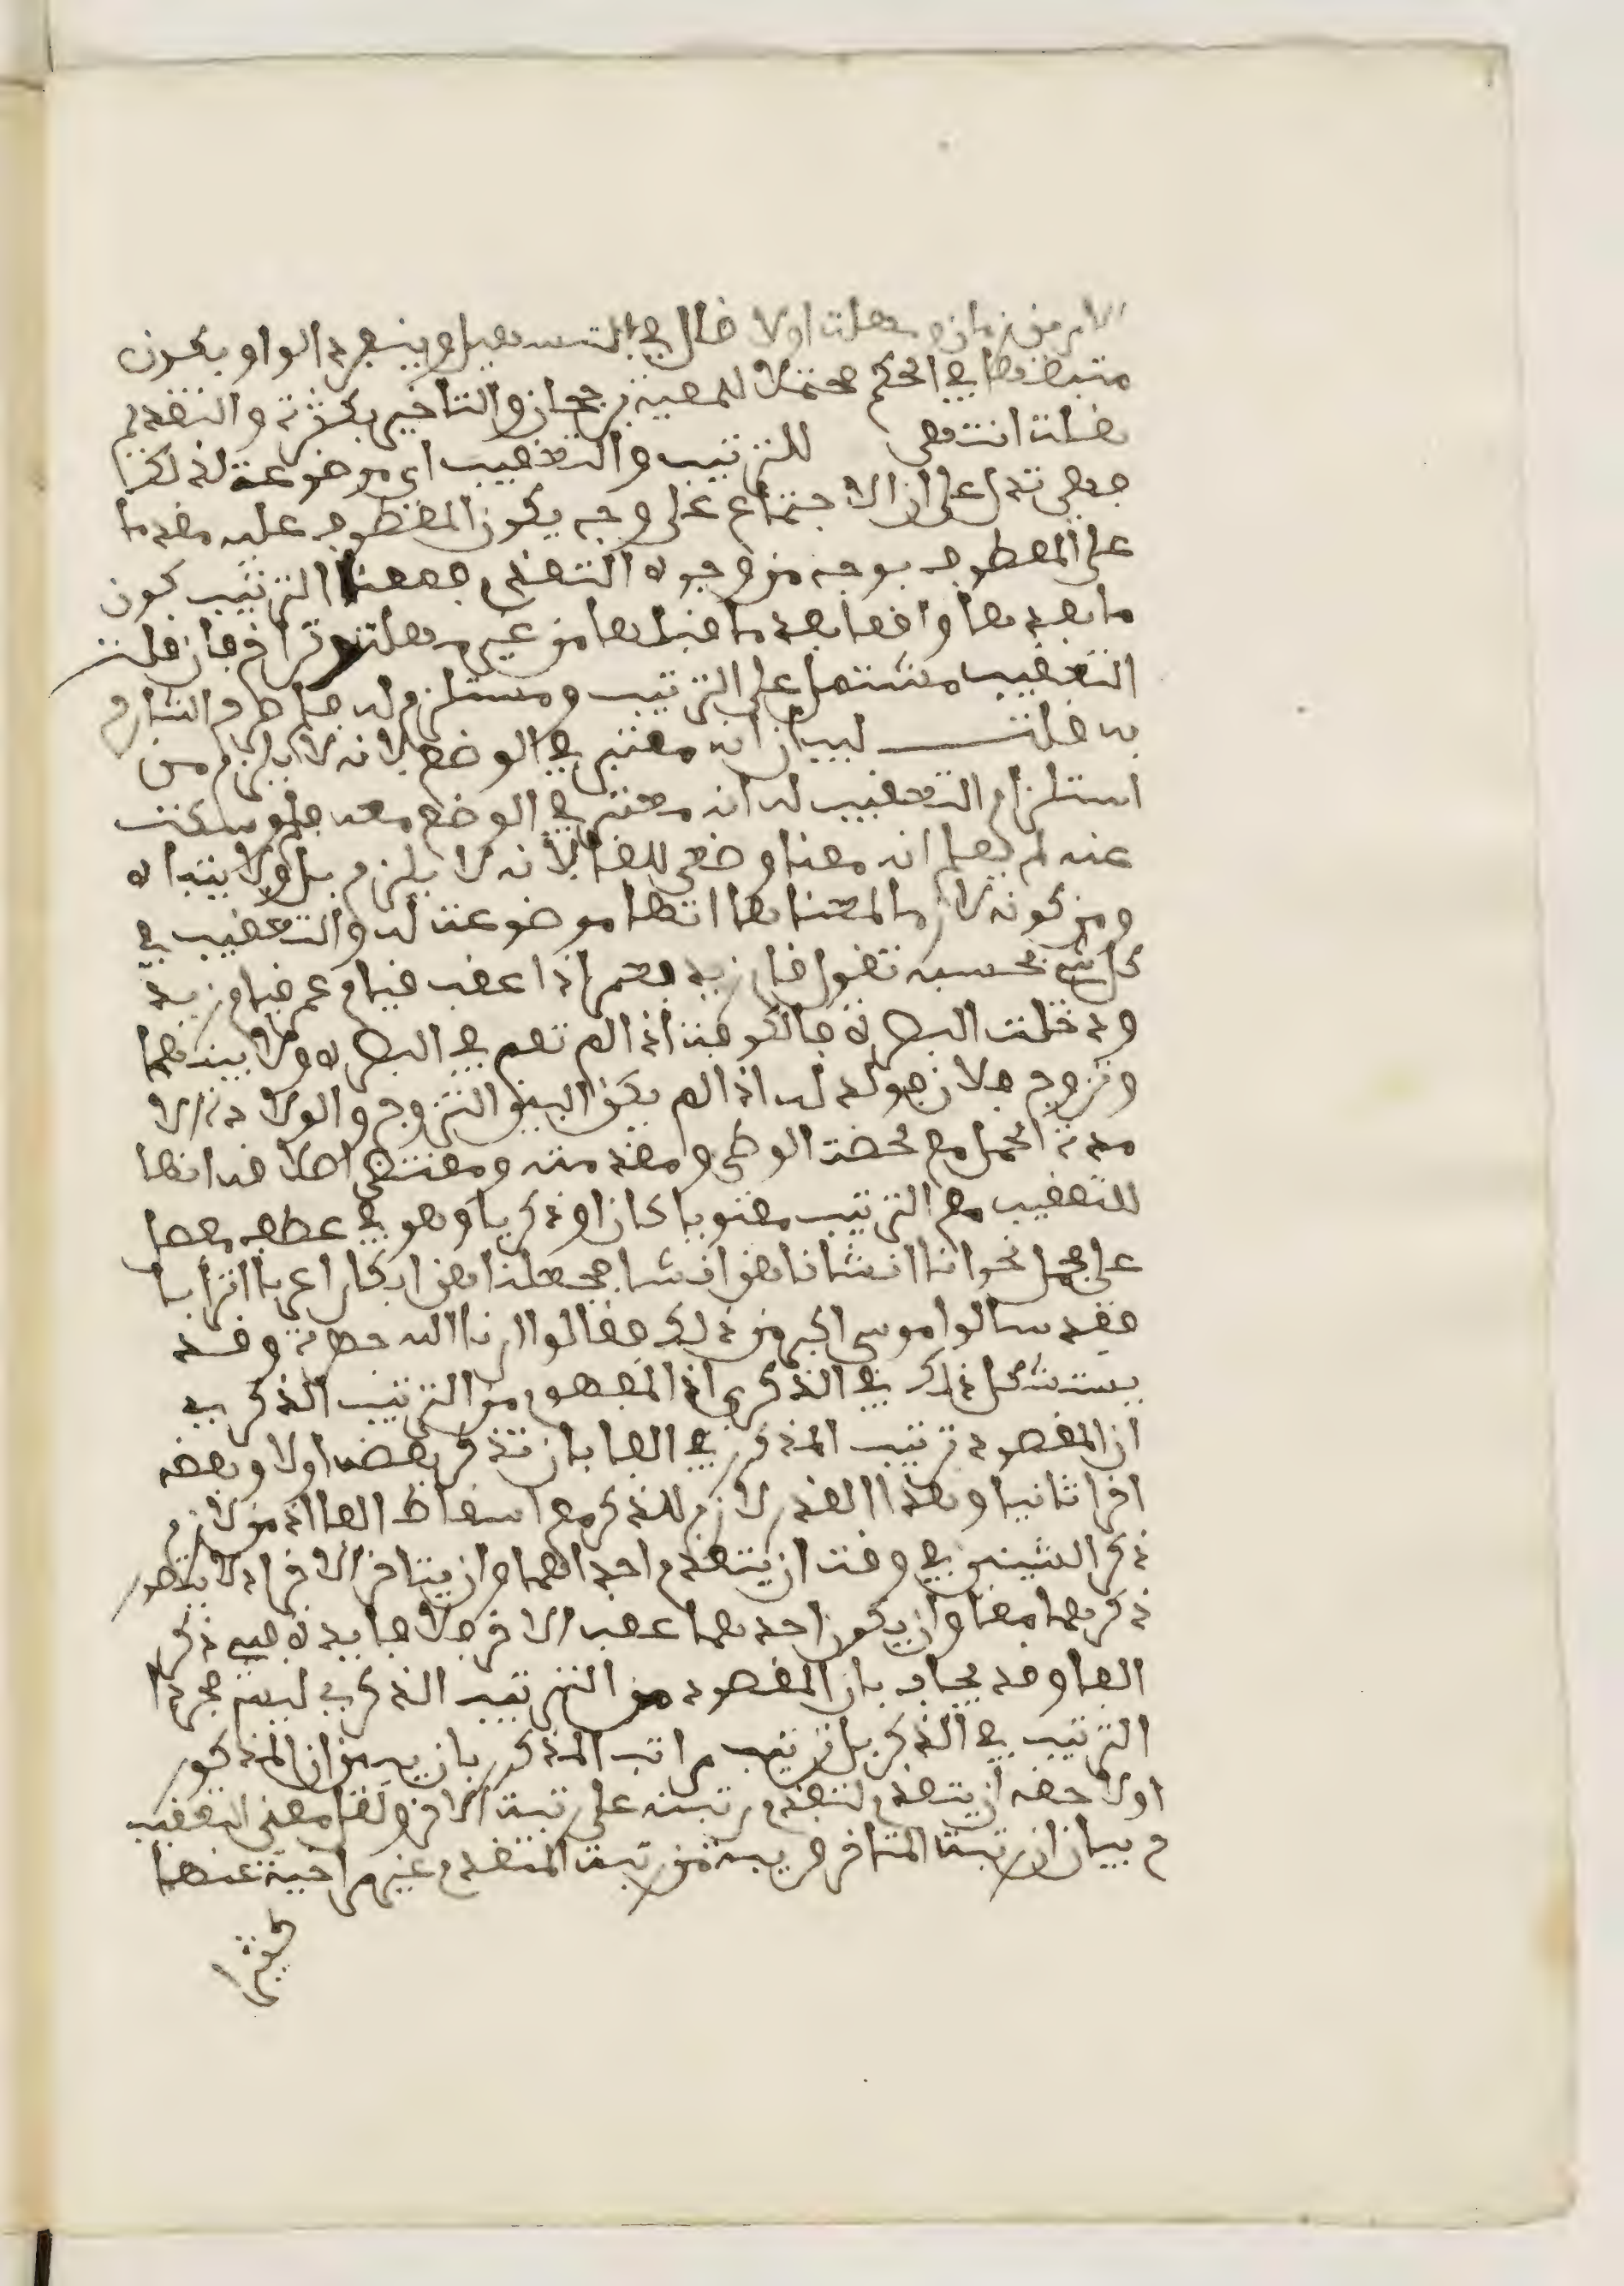 الامر من زمان ومهلة اولا قال في التسهيل وينفرد الواو بكون
متبعها في الحكم محتملا للمعية برجحان والتاخير بكثرة والتقدم
بقلة انتهى للترتيب والتعقيب اي موضوعة لذلك
فهي تدل على ان الاجتماع على وجه يكون المعطوف عليه مقدما
على المعطوف بوجه من وجوه التقدم فمعنا الترتيب كون
ما بعدها واقعا بعد ما قبلها من غير مهلة وتراخ فان قلت
التعقيب مشتمل على الترتيب ومستلزم له فما
به قلت لبيان انه معتبر في الوضع لانه لا يلزم من
استلزام التعقيب له انه معتبر في الوضع معه فلو سكت
عنه لم يعلم انه معنا وضعي للفا لانه لا يلزم بل ولا يتبا
ومن كونه لازما لمعناها انها موضوعة له والتعقيب في
كل شيء بحسبه تقول قام زيد فعمر اذا عقب قيام عمر قيام زيد
ودخلت البصرة فالكوفة اذا لم تقم في البصرة ولا بينهما
وتزوج فلان فولد له اذا لم يكن البين التزوج والولادة الا
مدة الحمل مع لحضة الوطي ومقدمته ومقتضى اطلاقه انها
للتعقيب مع الترتيب معنويا كان او ذكريا وهو في عطف مفصل
على مجمل نحو انا انشاناهن انشا فجعلناهن ابكارا عربا اترابا
فقد سالوا موسى اكبر من ذلك فقالوا ارنا الله جهرة وقد
يستشكل ذلك في الذكري اذ المفهوم من الترتيب الذكري
ان المقصود ترتيب المذكور في الفا بان تذكر بعضه اولا وبعضه
اخرا ثانيا وهذا القدر لازم للذكر مع اسقاط الفا اذ من لازم
ذكر الشيئين في وقت ان يتقدم احداهما وان يتاخر الاخر اذ لا يتصور
ذكرهما معا وان يكون احدهما عقب الاخر فلا فايدة في ذكر
الفا وقد يجاب بان المقصود من الترتيب الذكري ليس مجرد
الترتيب في الذكر بل ترتيب مراتب المذكور بان يبين ان المذكور
اولا حقه ان يتقدم لتقدم رتبته على رتبة الاخر ولفا معنى التعقيب
م بيان ان رتبة المتاخر قريبة من رتبة المتقدم غير متراخية عنها
كثيرا